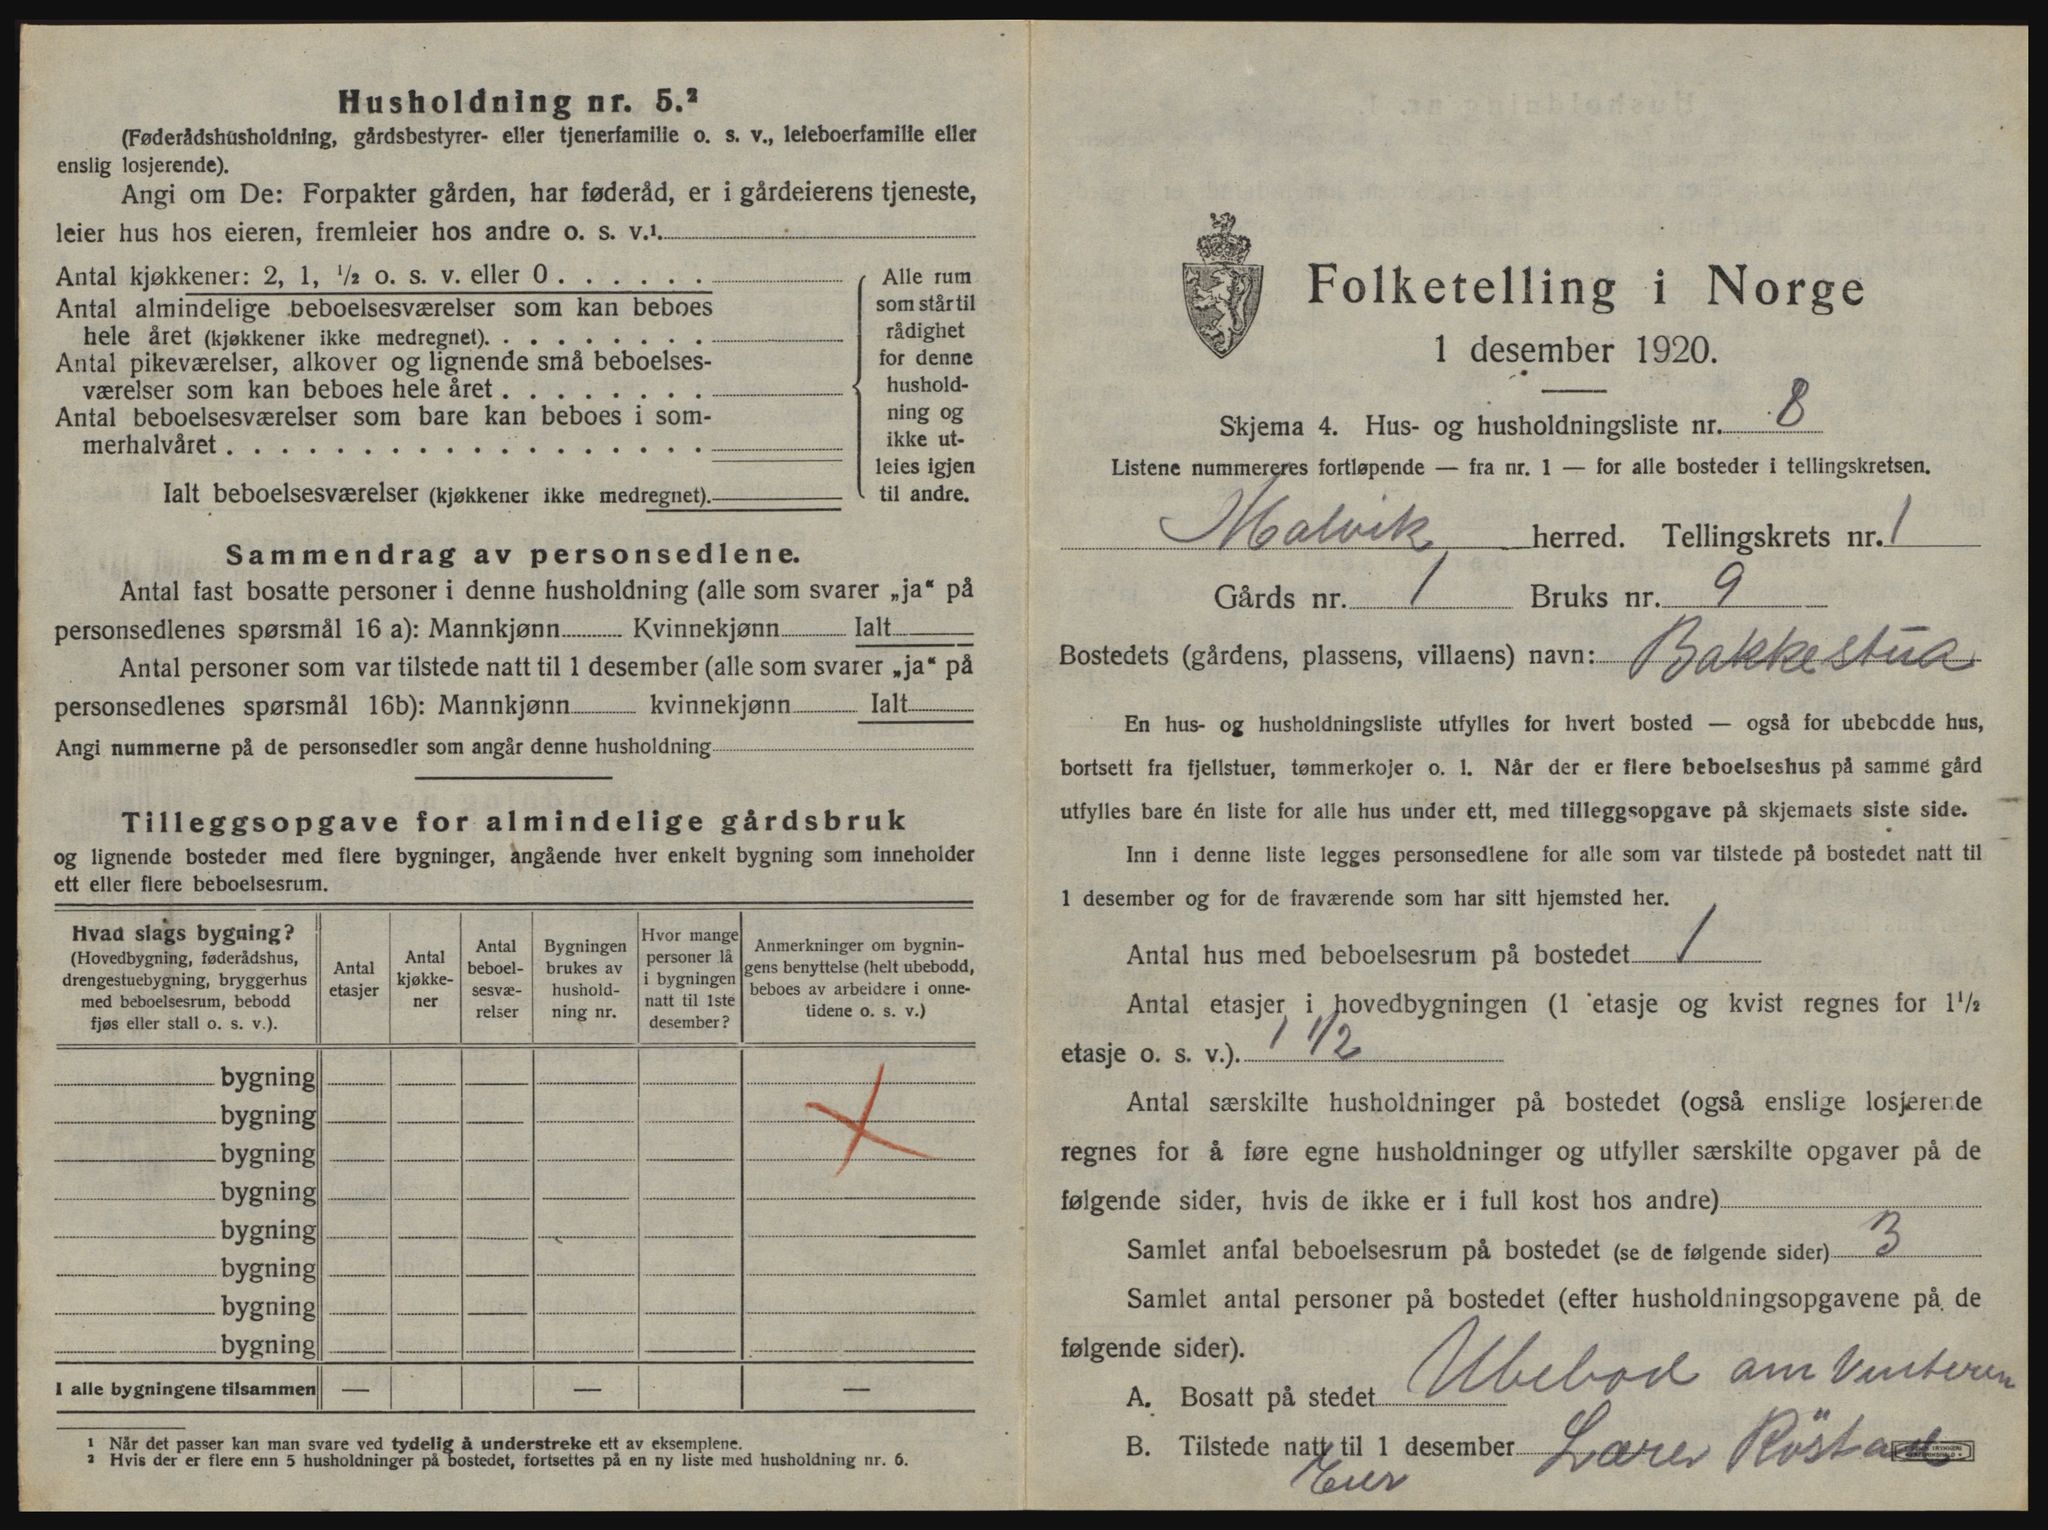 Husholdning nr. 5.²
(Føderådshusholdning, gårdsbestyrer- eller tjenerfamilie o. s. v., leieboerfamilie eller
enslig losjerende).
Angi om De: Forpakter gården, har føderåd, er i gårdeierens tjeneste,
leier hus hos eieren, fremleier hos andre o. s. v.¹
Antal kjøkkener: 2, 1, ½ o. s. v. eller 0
Antal almindelige beboelsesværelser som kan beboes
hele året (kjøkkener ikke medregnet).
Antal pikeværelser, alkover og lignende små beboelses-
værelser som kan beboes hele året
Antal beboelsesværelser som bare kan beboes i som-
merhalvåret
Ialt beboelsesværelser (kjøkkener ikke medregnet).
Alle rum
som står til
rådighet
for denne
hushold-
ning og
ikke ut-
leies igjen
til andre.
Sammendrag av personsedlene.
Antal fast bosatte personer i denne husholdning (alle som svarer „ja“ på
personsedlenes spørsmål 16 a): Mannkjønn Kvinnekjønn Ialt
Antal personer som var tilstede natt til 1 desember (alle som svarer „ja“ på
personsedlenes spørsmål 16b): Mannkjønn kvinnekjønn Ialt
Angi nummerne på de personsedler som angår denne husholdning
Tilleggsopgave for almindelige gårdsbruk
og lignende bosteder med flere bygninger, angående hver enkelt bygning som inneholder
ett eller flere beboelsesrum.
Hvad slags bygning?
(Hovedbygning, føderådshus,
drengestuebygning, bryggerhus
med beboelsesrum, bebodd
fjøs eller stall o. s. v.).
Antal
etasjer
Antal
kjøkke-
ner
Antal
beboel-
sesvæ-
relser
Bygningen
brukes av
hushold-
ning nr.
Hvor mange
personer lå
i bygningen
natt til 1ste
desember?
Anmerkninger om bygnin-
gens benyttelse (helt ubebodd,
beboes av arbeidere i onne-
tidene o. s. v.)
bygning
bygning
bygning
bygning
bygning
bygning
bygning
bygning
I alle bygningene tilsammen — — —
¹ Når det passer kan man svare ved tydelig å understreke ett av eksemplene.
² Hvis der er flere enn 5 husholdninger på bostedet, fortsettes på en ny liste med husholdning nr. 6.
Folketelling i Norge
1 desember 1920.
Skjema 4. Hus- og husholdningsliste nr. 8
Listene nummereres fortløpende — fra nr. 1 — for alle bosteder i tellingskretsen.
Malvik herred. Tellingskrets nr. 1
Gårds nr. 1 Bruks nr. 9
Bostedets (gårdens, plassens, villaens) navn: Bakkestua
En hus- og husholdningsliste utfylles for hvert bosted — også for ubebodde hus,
bortsett fra fjellstuer, tømmerkojer o. l. Når der er flere beboelseshus på samme gård
utfylles bare én liste for alle hus under ett, med tilleggsopgave på skjemaets siste side.
Inn i denne liste legges personsedlene for alle som var tilstede på bostedet natt til
1 desember og for de fraværende som har sitt hjemsted her.
Antal hus med beboelsesrum på bostedet 1
Antal etasjer i hovedbygningen (1 etasje og kvist regnes for 1½
etasje o. s. v.). 1 1/2
Antal særskilte husholdninger på bostedet (også enslige losjerende
regnes for å føre egne husholdninger og utfyller særskilte opgaver på de
følgende sider, hvis de ikke er i full kost hos andre)
Samlet antal beboelsesrum på bostedet (se de følgende sider) 3
Samlet antal personer på bostedet (efter husholdningsopgavene på de
følgende sider).
A. Bosatt på stedet Ubebod om Vinteren
B. Tilstede natt til 1 desember Lærer Röstad
Eier